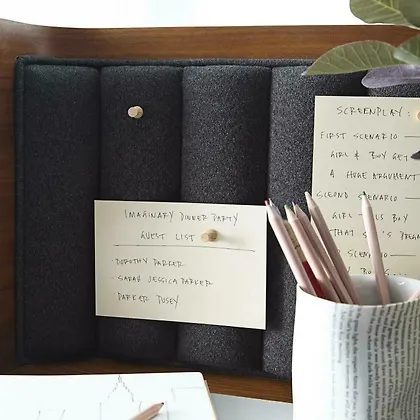 IMAGINARY DINNER PARTY
GUEST LIST
DOROTHY PARKER
SARAH JESSICA PARKER
PARKER POSEY
SCREENPLAY:
FIRST SCENARIO —
GIRL & BOY GET
A HUGE ARGUMENT
SECOND SCENARIO —
GIRL BOY
THAT SHE'S
SCENARIO